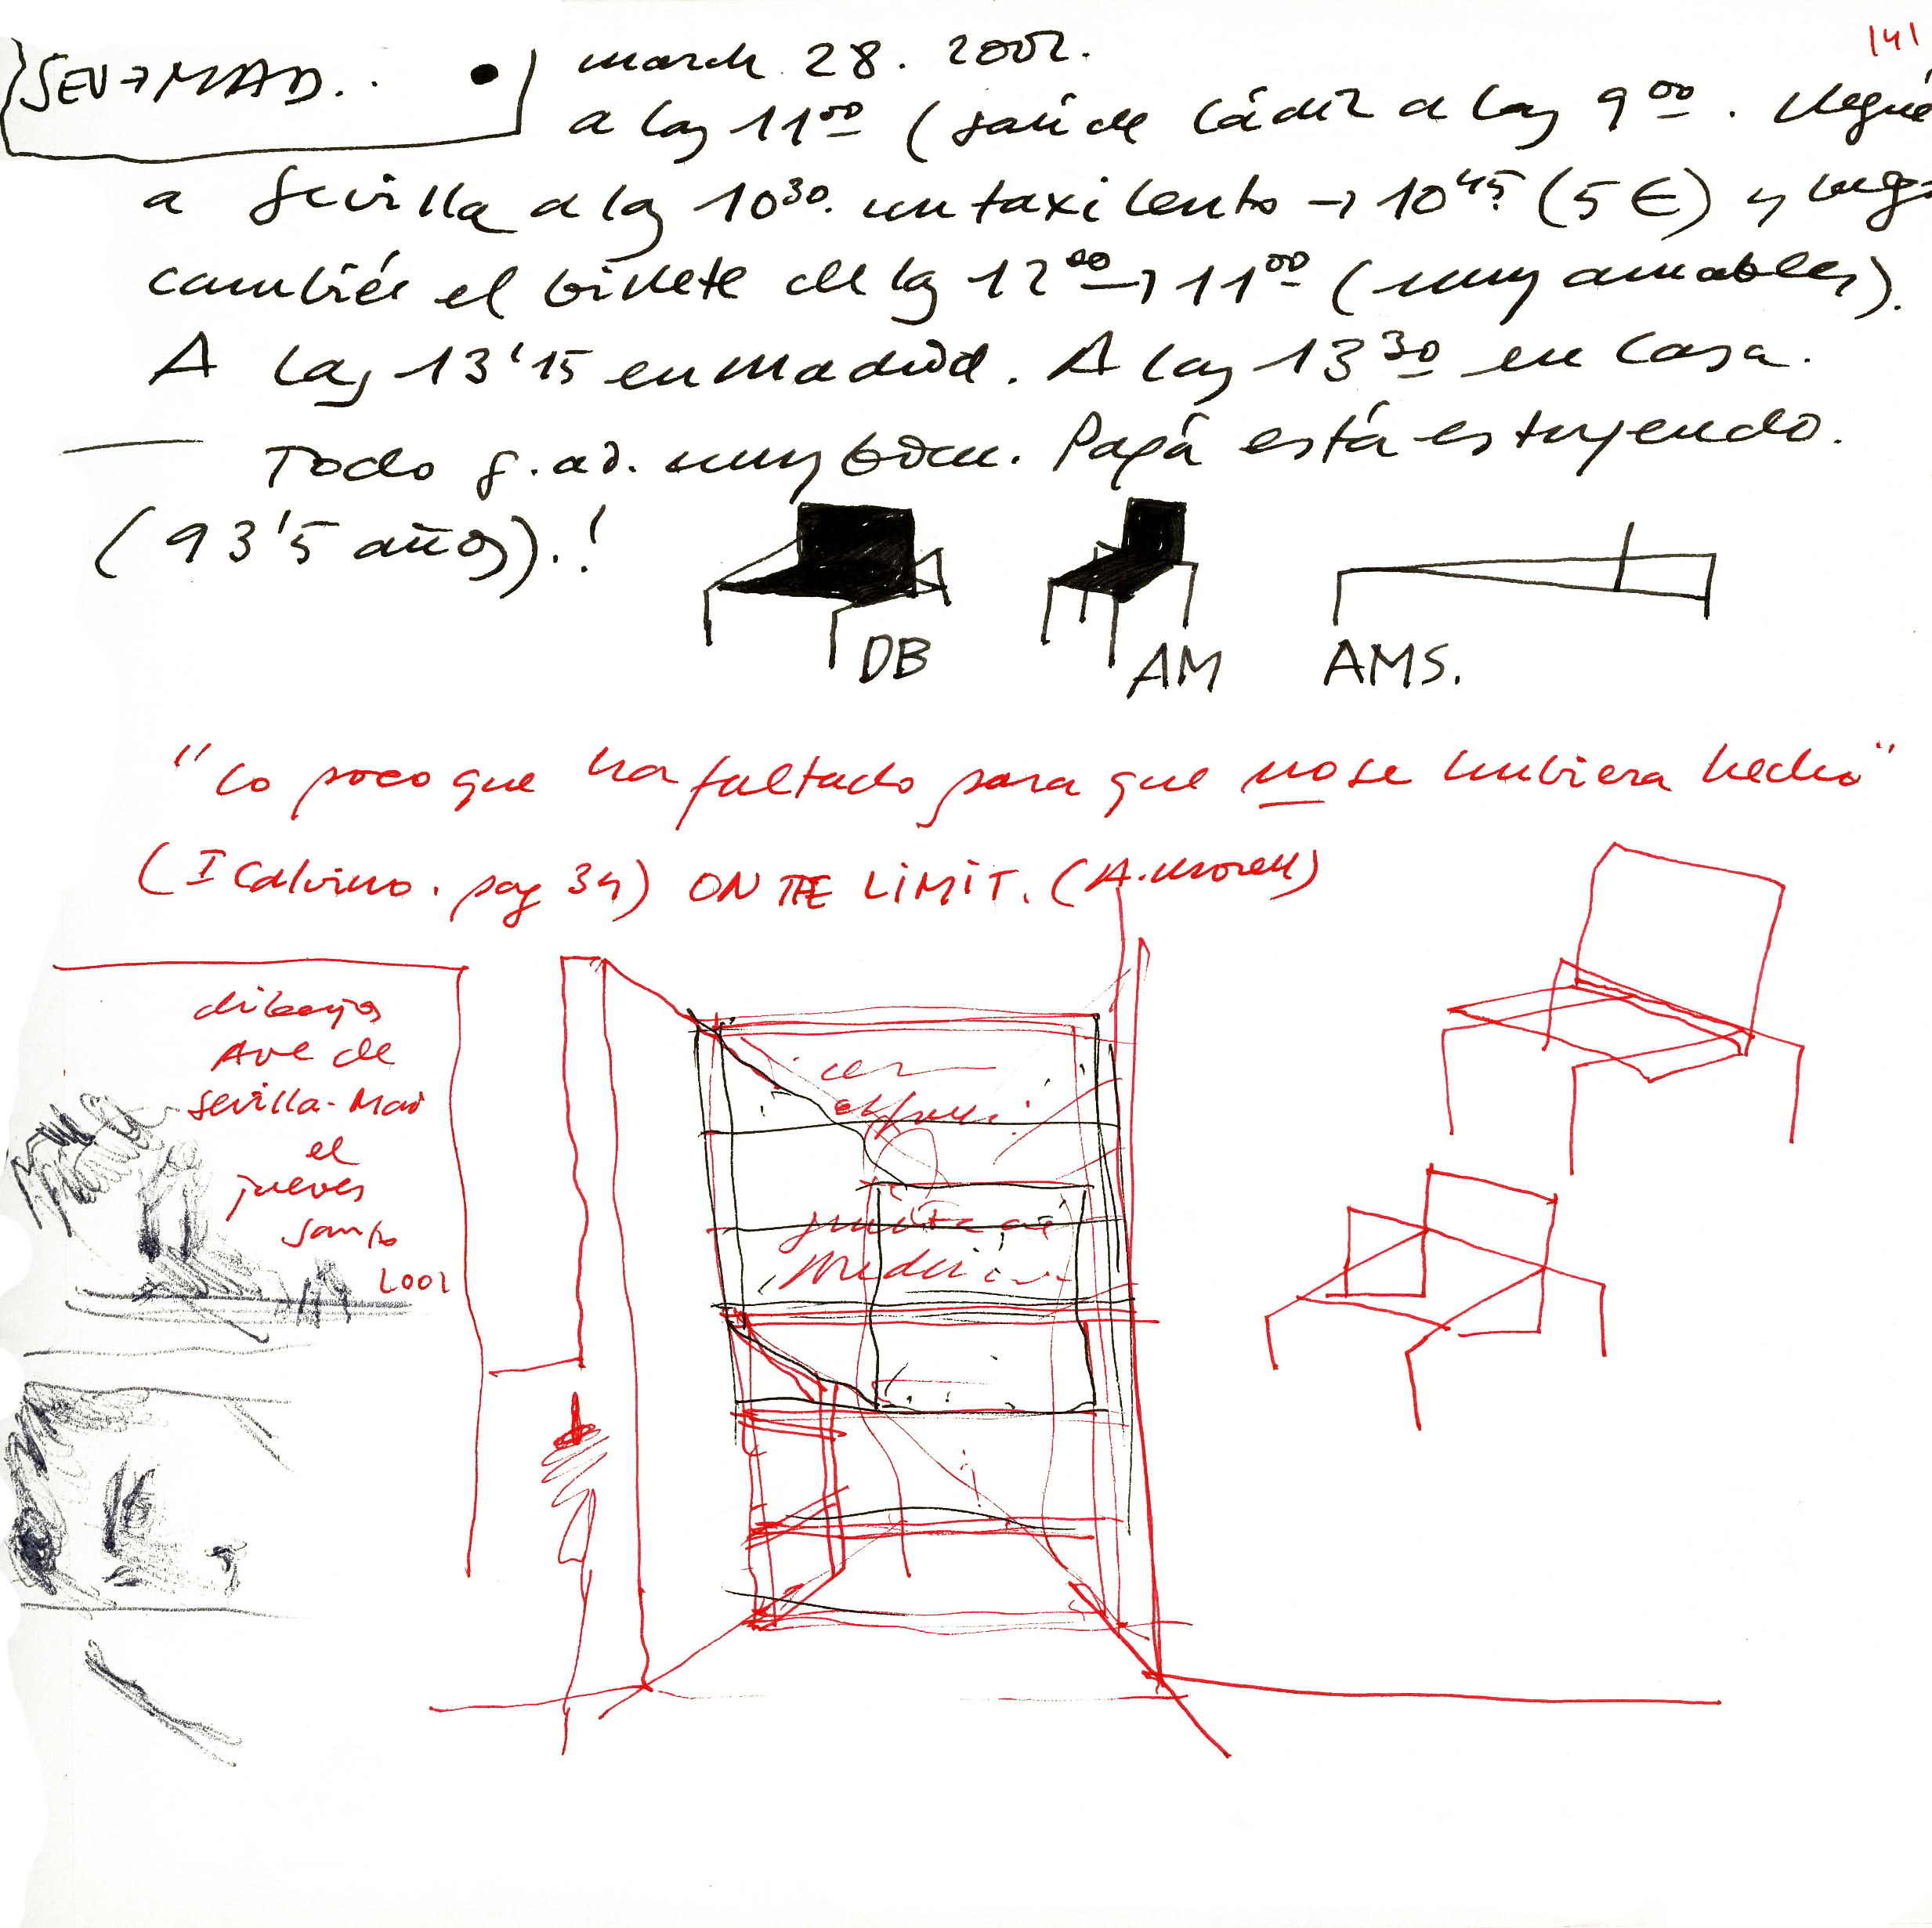 141
SEV→MAD..
march 28. 2002.
a las 11⁰⁰ (salí de Cádiz a las 9⁰⁰. llegué
a Sevilla a las 10³⁰. un taxi lento → 10⁴⁵ (5 €) y luego
cambié el billete de las 12⁰⁰ → 11⁰⁰ (muy amables).
A las 13'15 en Madrid. A las 13³⁰ en casa.
Todo g.a.D. muy bien. Papá está estupendo.
(93'5 años).!
DB AM AMS.
"lo poco que ha faltado para que no se hubiera hecho"
(I Calvino. pag 34) ON THE LIMIT. (A. Morell)
dibujos
Ave de
Sevilla-Mad
el
jueves
santo
2002